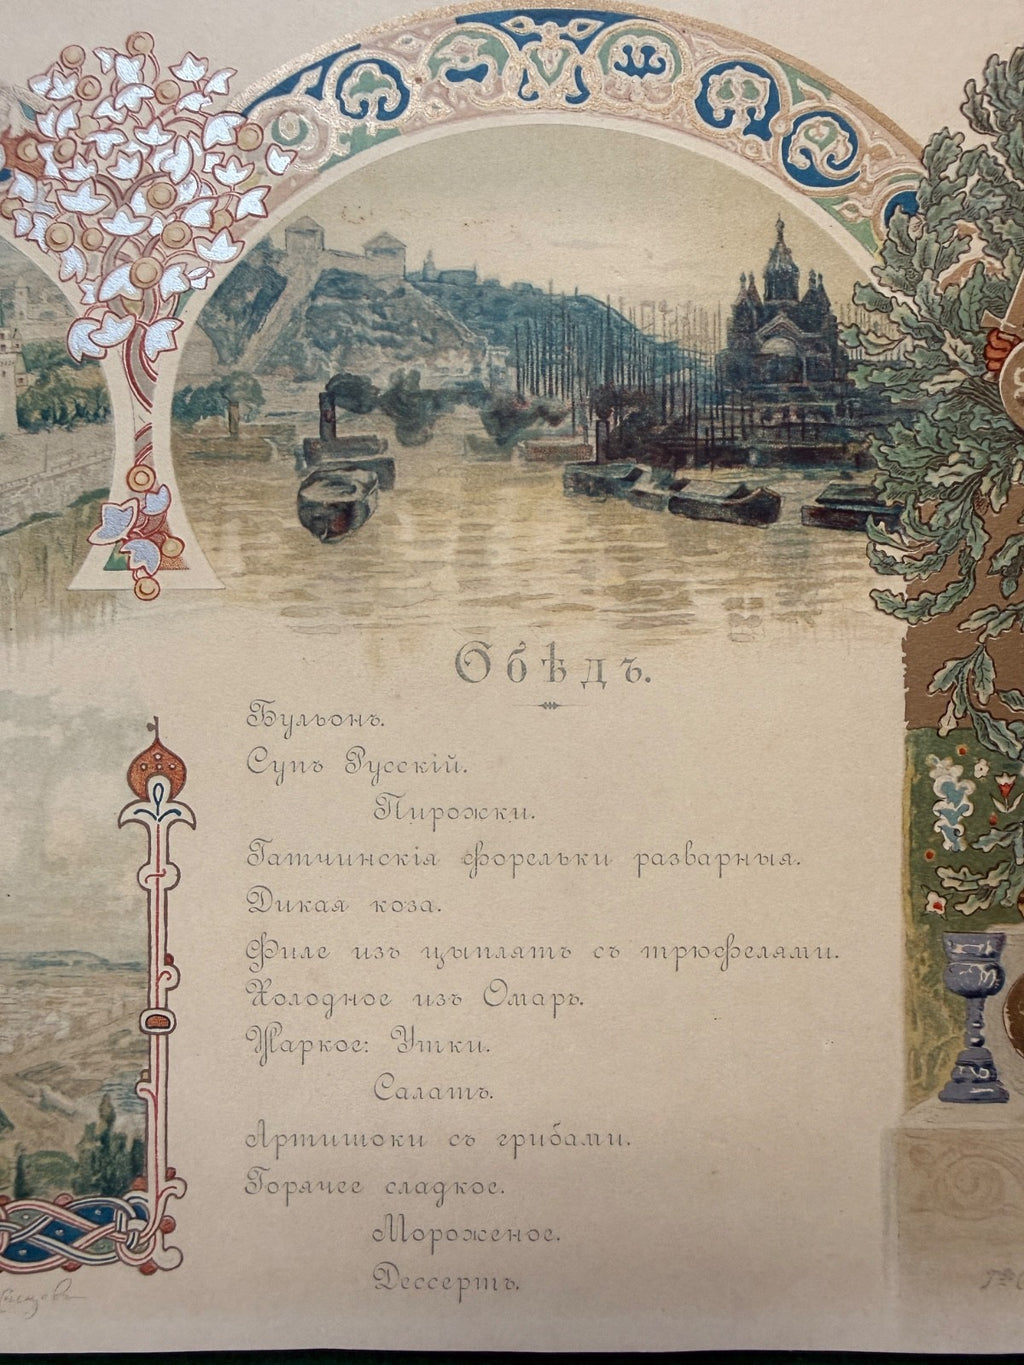 Обѣдъ.
Бульонъ.
Супъ Русскій.
Пирожки.
Гатчинскія форельки разварныя.
Дикая коза.
Филе изъ цыплятъ съ трюфелями.
Холодное изъ Омаръ.
Жаркое: Утки.
Салатъ.
Артишоки съ грибами.
Горячее сладкое.
Мороженое.
Дессертъ.